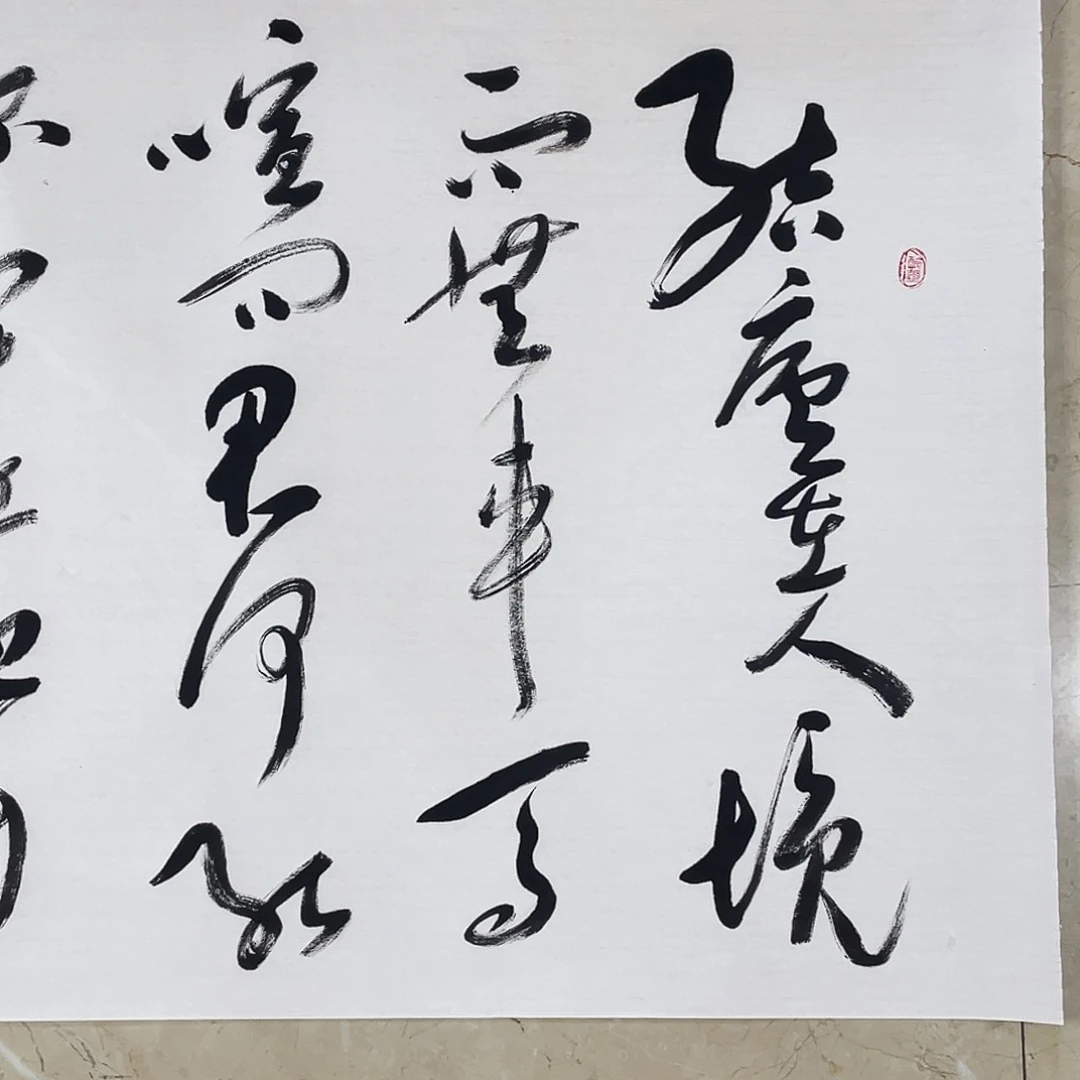 結廬在人境
而無車馬
喧問君何能